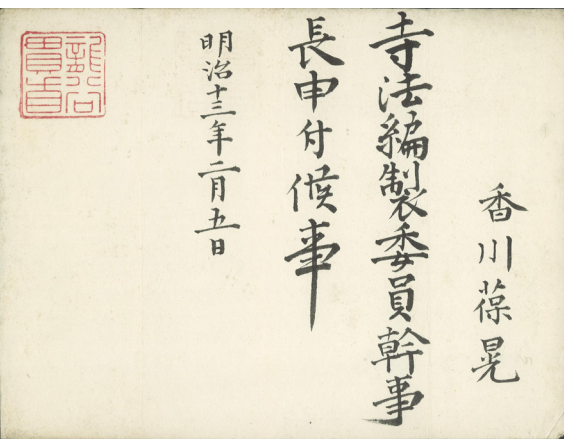 香川葆晃
寺法編製委員幹事
長申付候事
明治十三年二月五日
龍谷
貫首